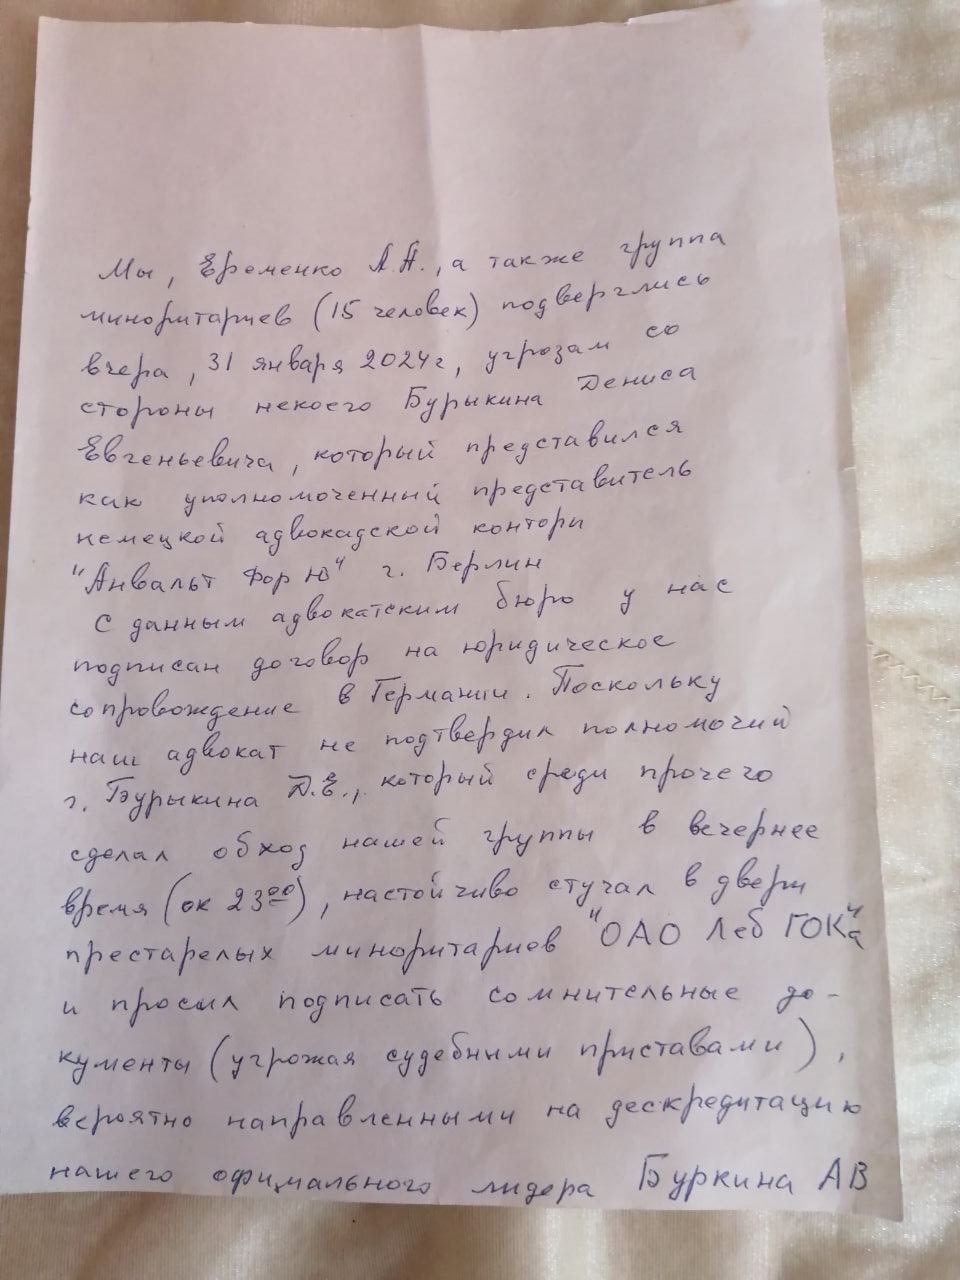 Мы, Еременко А.А., а также группа
миноритариев (15 человек) подверглись
вчера, 31 января 2024г, угрозам со
стороны некоего Бурыкина Дениса
Евгеньевича, который представился
как уполномоченный представитель
немецкой адвокадской конторы
"Анвальт Фор Ю" г. Берлин
С данным адвокатским бюро у нас
подписан договор на юридическое
сопровождение в Германии. Поскольку
наш адвокат не подтвердил полномочий
г. Бурыкина Д.Е., который среди прочего
сделал обход нашей группы в вечернее
время (ок 23⁰⁰), настойчиво стучал в двери
престарелых миноритариев "ОАО Леб ГОКа"
и просил подписать сомнительные до-
кументы (угрожая судебными приставами),
вероятно направленными на дескредитацию
нашего официального лидера Буркина АВ